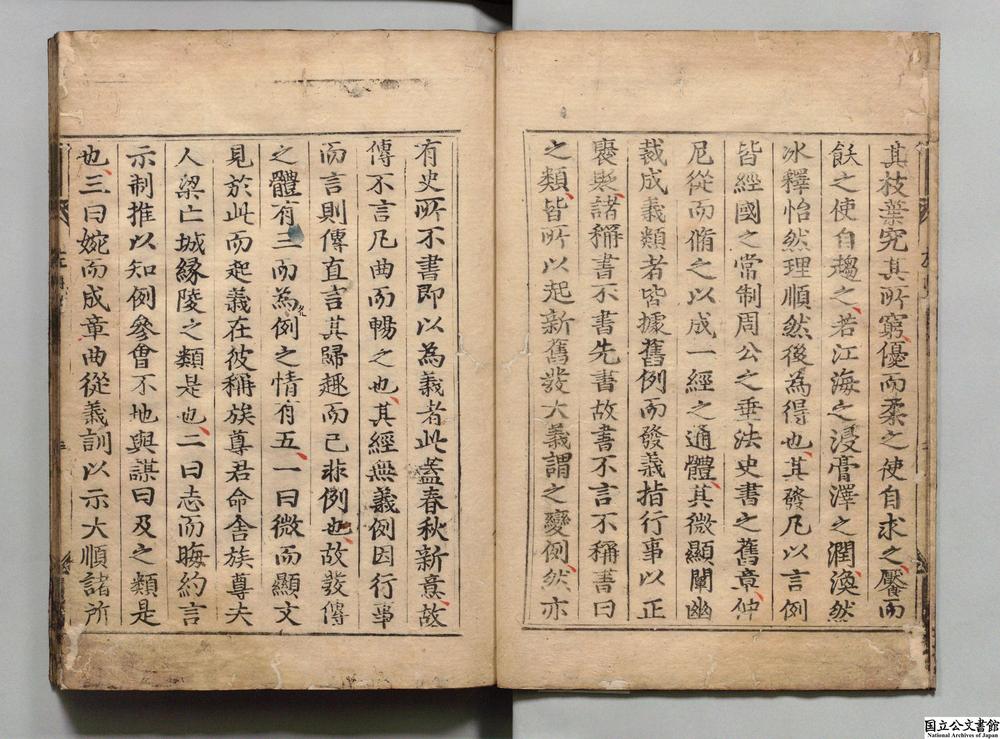 其枝葉究其所窮優而柔之使自求之饜而
飫之使自趨之若江海之浸膏澤之潤渙然
冰釋怡然理順然後為得也其發凡以言例
皆經國之常制周公之垂法史書之舊章仲
尼從而脩之以成一經之通體其微顯闡幽
裁成義類者皆據舊例而發義指行事以正
褒貶諸稱書不書先書故書不言不稱書曰
之類皆所以起新舊發大義謂之變例然亦
有史所不書即以為義者此蓋春秋新意故
傳不言凡曲而暢之也其經無義例因行事
而言則傳直言其歸趣而已非例也故發傳
之體有三而為例之情有五一曰微而顯文
見於此而起義在彼稱族尊君命舍族尊夫
人梁亡城緣陵之類是也二曰志而晦約言
示制推以知例參會不地與謀曰及之類是
也三曰婉而成章曲從義訓以示大順諸所
国立公文書館
National Archives of Japan